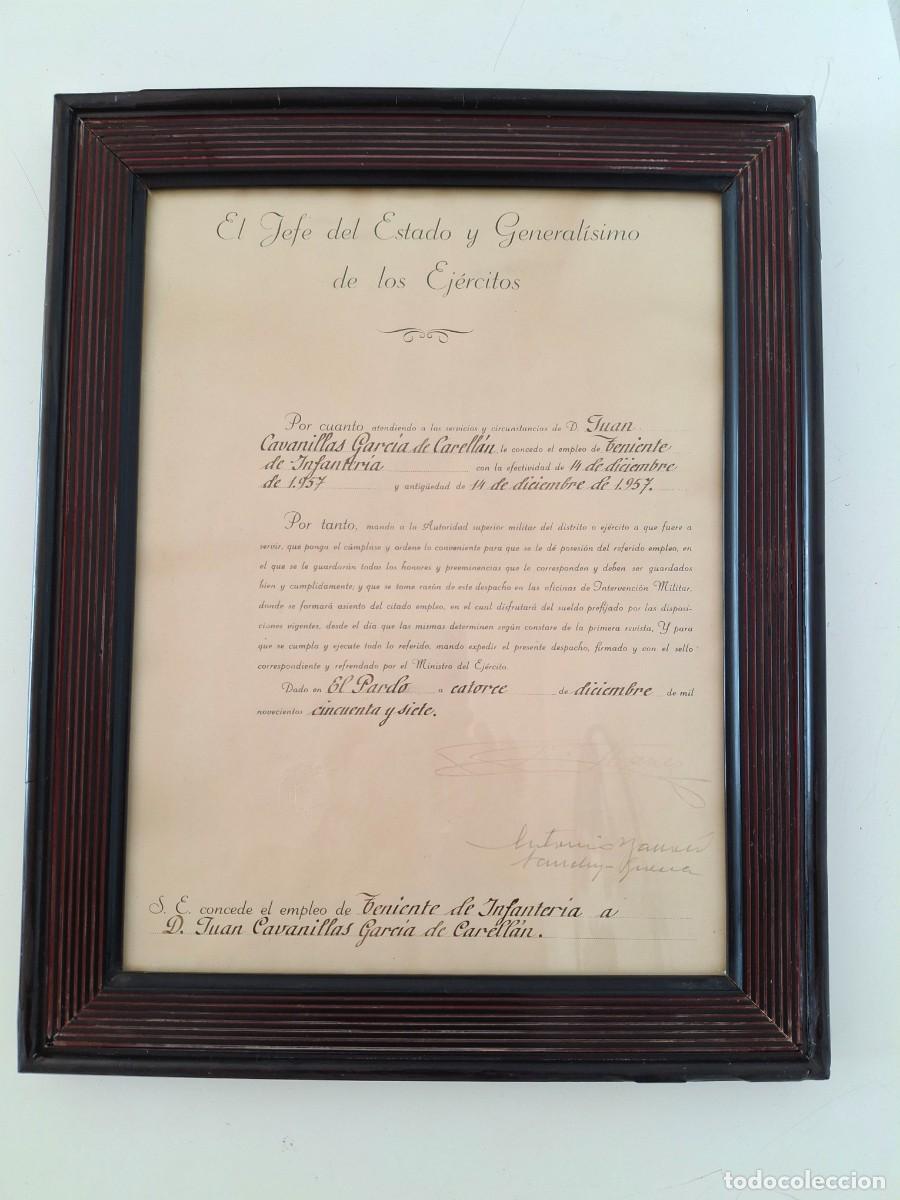 El Jefe del Estado y Generalísimo
de los Ejércitos
Por cuanto atendiendo a los servicios y circunstancias de D. Juan
Cavanillas García de Carellán, le concedo el empleo de Teniente
de Infantería con la efectividad de 14 de diciembre
de 1.957 y antigüedad de 14 de diciembre de 1.957.
Por tanto, mando a la Autoridad superior militar del distrito o ejército a que fuere a
servir, que ponga el cúmplase y ordene lo conveniente para que se le dé posesión del referido empleo, en
el que se le guardarán todos los honores y preeminencias que le corresponden y deben ser guardados
bien y cumplidamente; y que se tome razón de este despacho en las oficinas de Intervención Militar,
donde se formará asiento del citado empleo, en el cual disfrutará del sueldo prefijado por las disposi-
ciones vigentes, desde el día que las mismas determinen según constare de la primera revista. Y para
que se cumpla y ejecute todo lo referido, mando expedir el presente despacho, firmado y con el sello
correspondiente y refrendado por el Ministro del Ejército.
Dado en El Pardo a catorce de diciembre de mil
novecientos cincuenta y siete.
Antonio
S. E. concede el empleo de Teniente de Infantería a
D. Juan Cavanillas García de Carellán.
todocoleccion